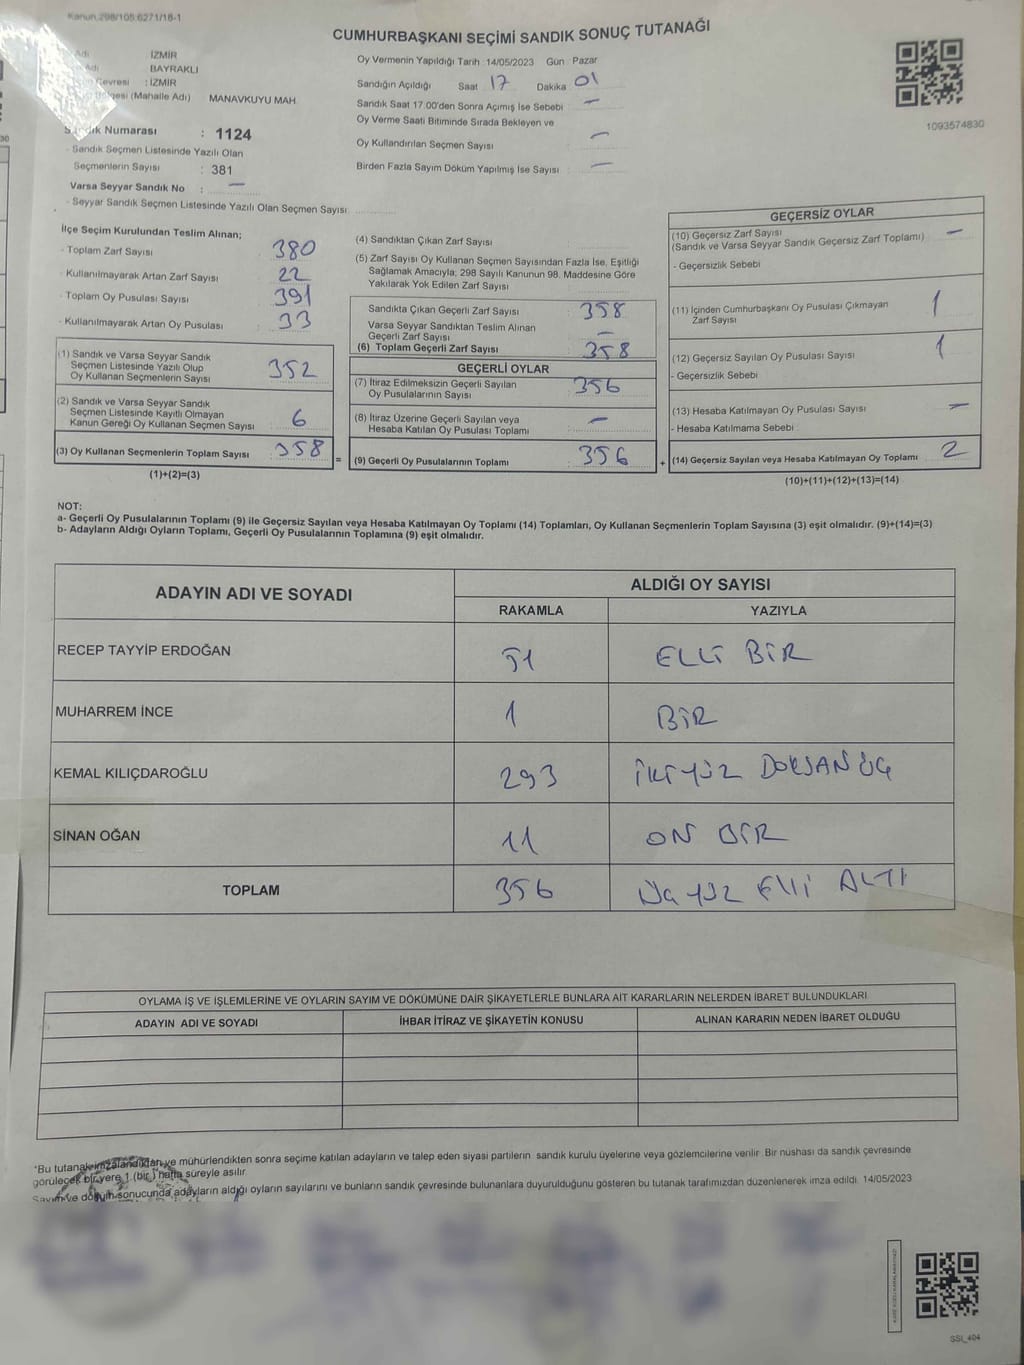 Kanun:298/105:6271/18-1
CUMHURBAŞKANI SEÇİMİ SANDIK SONUÇ TUTANAĞI
Adı İZMİR
Adı BAYRAKLI
Çevresi : İZMİR
Bölgesi (Mahalle Adı) MANAVKUYU MAH.
Sandık Numarası : 1124
- Sandık Seçmen Listesinde Yazılı Olan
Seçmenlerin Sayısı : 381
Varsa Seyyar Sandık No : —
- Seyyar Sandık Seçmen Listesinde Yazılı Olan Seçmen Sayısı
Oy Vermenin Yapıldığı Tarih 14/05/2023 Gün Pazar
Sandığın Açıldığı Saat 17 Dakika 01
Sandık Saat 17.00'den Sonra Açımış İse Sebebi —
Oy Verme Saati Bitiminde Sırada Bekleyen ve
Oy Kullandırılan Seçmen Sayısı —
Birden Fazla Sayım Döküm Yapılmış İse Sayısı —
1093574830
İlçe Seçim Kurulundan Teslim Alınan;
- Toplam Zarf Sayısı 380
- Kullanılmayarak Artan Zarf Sayısı 22
- Toplam Oy Pusulası Sayısı 391
- Kullanılmayarak Artan Oy Pusulası 33
(1) Sandık ve Varsa Seyyar Sandık
Seçmen Listesinde Yazılı Olup
Oy Kullanan Seçmenlerin Sayısı 352
(2) Sandık ve Varsa Seyyar Sandık
Seçmen Listesinde Kayıtlı Olmayan
Kanun Gereği Oy Kullanan Seçmen Sayısı 6
(3) Oy Kullanan Seçmenlerin Toplam Sayısı 358
(1)+(2)=(3)
=
(4) Sandıktan Çıkan Zarf Sayısı
(5) Zarf Sayısı Oy Kullanan Seçmen Sayısından Fazla İse, Eşitliği
Sağlamak Amacıyla; 298 Sayılı Kanunun 98. Maddesine Göre
Yakılarak Yok Edilen Zarf Sayısı
Sandıkta Çıkan Geçerli Zarf Sayısı 358
Varsa Seyyar Sandıktan Teslim Alınan
Geçerli Zarf Sayısı —
(6) Toplam Geçerli Zarf Sayısı 358
GEÇERLİ OYLAR
(7) İtiraz Edilmeksizin Geçerli Sayılan
Oy Pusulalarının Sayısı 356
(8) İtiraz Üzerine Geçerli Sayılan veya
Hesaba Katılan Oy Pusulası Toplamı —
(9) Geçerli Oy Pusulalarının Toplamı 356
+
GEÇERSİZ OYLAR
(10) Geçersiz Zarf Sayısı
(Sandık ve Varsa Seyyar Sandık Geçersiz Zarf Toplamı) —
- Geçersizlik Sebebi
(11) İçinden Cumhurbaşkanı Oy Pusulası Çıkmayan
Zarf Sayısı 1
(12) Geçersiz Sayılan Oy Pusulası Sayısı 1
- Geçersizlik Sebebi
(13) Hesaba Katılmayan Oy Pusulası Sayısı —
- Hesaba Katılmama Sebebi
(14) Geçersiz Sayılan veya Hesaba Katılmayan Oy Toplamı 2
(10)+(11)+(12)+(13)=(14)
NOT:
a- Geçerli Oy Pusulalarının Toplamı (9) ile Geçersiz Sayılan veya Hesaba Katılmayan Oy Toplamı (14) Toplamları, Oy Kullanan Seçmenlerin Toplam Sayısına (3) eşit olmalıdır. (9)+(14)=(3)
b- Adayların Aldığı Oyların Toplamı, Geçerli Oy Pusulalarının Toplamına (9) eşit olmalıdır.
ADAYIN ADI VE SOYADI ALDIĞI OY SAYISI
RAKAMLA YAZIYLA
RECEP TAYYİP ERDOĞAN 51 ELLİ BİR
MUHARREM İNCE 1 BİR
KEMAL KILIÇDAROĞLU 293 İKİ YÜZ DOKSAN ÜÇ
SİNAN OĞAN 11 ON BİR
TOPLAM 356 ÜÇ YÜZ ELLİ ALTI
OYLAMA İŞ VE İŞLEMLERİNE VE OYLARIN SAYIM VE DÖKÜMÜNE DAİR ŞİKAYETLERLE BUNLARA AİT KARARLARIN NELERDEN İBARET BULUNDUKLARI
ADAYIN ADI VE SOYADI İHBAR İTİRAZ VE ŞİKAYETİN KONUSU ALINAN KARARIN NEDEN İBARET OLDUĞU
*Bu tutanak imzalandıktan ve mühürlendikten sonra seçime katılan adayların ve talep eden siyasi partilerin sandık kurulu üyelerine veya gözlemcilerine verilir. Bir nüshası da sandık çevresinde
görülecek bir yere 1 (bir) hafta süreyle asılır.
Sayım ve döküm sonucunda adayların aldığı oyların sayılarını ve bunların sandık çevresinde bulunanlara duyurulduğunu gösteren bu tutanak tarafımızdan düzenlenerek imza edildi. 14/05/2023
SSI_404